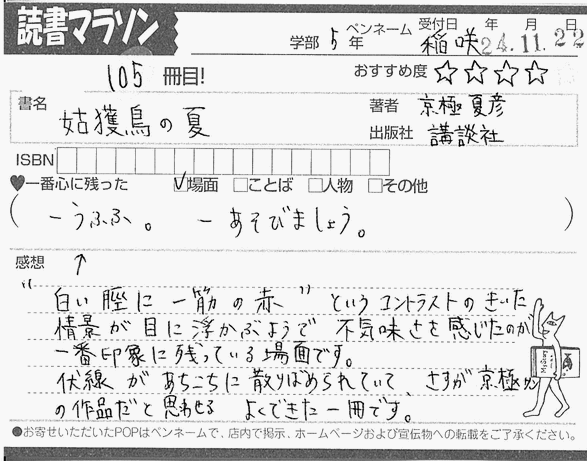 読書マラソン
学部 5年 ペンネーム 稲咲 受付日 年 月 日 24.11.22
105 冊目! おすすめ度 ☆☆☆☆
書名 姑獲鳥の夏 著者 京極夏彦
出版社 講談社
ISBN
♥一番心に残った ☑場面 □ことば □人物 □その他
(ーうふふ。 ーあそびましょう。)
感想 ↑
"白い脛に一筋の赤" というコントラストのきいた
情景が目に浮かぶようで 不気味さを感じたのが
一番印象に残っている場面です。
伏線があちこちに散りばめられていて、さすが京極
の作品だと思わせる よくできた一冊です。
●お寄せいただいたPOPはペンネームで、店内で掲示、ホームページおよび宣伝物への転載をご了承ください。